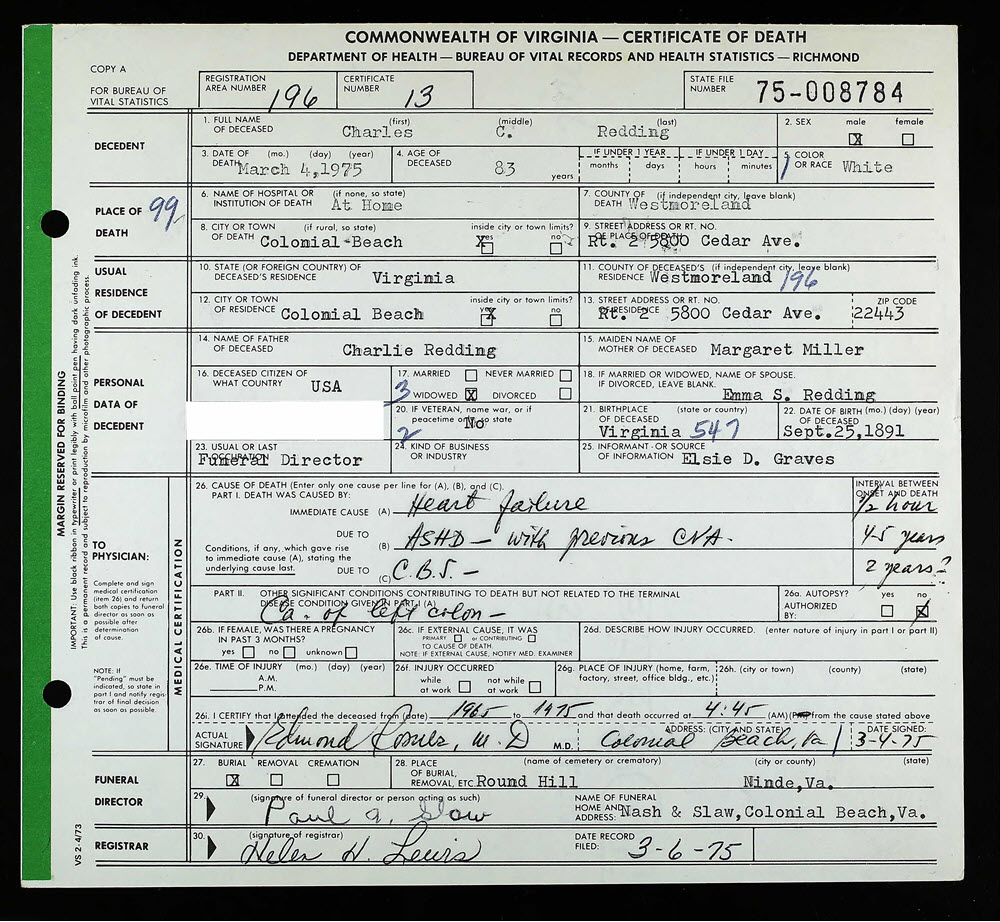 COMMONWEALTH OF VIRGINIA — CERTIFICATE OF DEATH
DEPARTMENT OF HEALTH — BUREAU OF VITAL RECORDS AND HEALTH STATISTICS — RICHMOND
COPY A
FOR BUREAU OF VITAL STATISTICS
REGISTRATION AREA NUMBER 196
CERTIFICATE NUMBER 13
STATE FILE NUMBER 75-008784
DECEDENT
1. FULL NAME OF DECEASED (first) (middle) (last) Charles C. Redding
2. SEX male X female
3. DATE OF DEATH (mo.) (day) (year) March 4,1975
4. AGE OF DECEASED 83 years
IF UNDER 1 YEAR months days
IF UNDER 1 DAY hours minutes
5. COLOR OR RACE White
1
PLACE OF DEATH
99
6. NAME OF HOSPITAL OR INSTITUTION OF DEATH (if none, so state) At Home
7. COUNTY OF DEATH (if independent city, leave blank) Westmoreland
8. CITY OR TOWN OF DEATH (if rural, so state) Colonial Beach
inside city or town limits? yes X no
9. STREET ADDRESS OR RT. NO. OF PLACE OF DEATH Rt. 2 5800 Cedar Ave.
USUAL RESIDENCE OF DECEDENT
10. STATE (OR FOREIGN COUNTRY) OF DECEASED'S RESIDENCE Virginia
11. COUNTY OF DECEASED'S RESIDENCE (if independent city, leave blank) Westmoreland 196
12. CITY OR TOWN OF RESIDENCE Colonial Beach
inside city or town limits? yes X no
13. STREET ADDRESS OR RT. NO. OF RESIDENCE Rt. 2 5800 Cedar Ave.
ZIP CODE 22443
PERSONAL DATA OF DECEDENT
14. NAME OF FATHER OF DECEASED Charlie Redding
15. MAIDEN NAME OF MOTHER OF DECEASED Margaret Miller
16. DECEASED CITIZEN OF WHAT COUNTRY USA
17. MARRIED NEVER MARRIED
WIDOWED X DIVORCED
3
18. IF MARRIED OR WIDOWED, NAME OF SPOUSE. IF DIVORCED, LEAVE BLANK. Emma S. Redding
20. IF VETERAN, name war, or if peacetime only so state No
2
21. BIRTHPLACE OF DECEASED (state or country) Virginia 547
22. DATE OF BIRTH (mo.) (day) (year) OF DECEASED Sept.25,1891
23. USUAL OR LAST OCCUPATION Funeral Director
24. KIND OF BUSINESS OR INDUSTRY
25. INFORMANT - OR SOURCE OF INFORMATION Elsie D. Graves
MARGIN RESERVED FOR BINDING
IMPORTANT: Use black ribbon in typewriter or print legibly with ball point pen having dark unfading ink.
This is a permanent record and subject to reproduction by microfilm and other photographic process.
TO PHYSICIAN:
Complete and sign medical certification (item 26) and return both copies to funeral director as soon as possible after determination of cause.
NOTE: If "Pending" must be indicated, so state in part I and notify registrar of final decision as soon as possible.
MEDICAL CERTIFICATION
26. CAUSE OF DEATH (Enter only one cause per line for (A), (B), and (C).
PART I. DEATH WAS CAUSED BY:
INTERVAL BETWEEN ONSET AND DEATH
IMMEDIATE CAUSE (A) Heart failure 1/2 hour
DUE TO (B) ASHD — with previous CVA. 4-5 years
Conditions, if any, which gave rise to immediate cause (A), stating the underlying cause last.
DUE TO (C) C.B.S. — 2 years?
PART II. OTHER SIGNIFICANT CONDITIONS CONTRIBUTING TO DEATH BUT NOT RELATED TO THE TERMINAL DISEASE CONDITION GIVEN IN PART I (A)
Ca. of left colon —
26a. AUTOPSY? AUTHORIZED BY: yes no X
26b. IF FEMALE, WAS THERE A PREGNANCY IN PAST 3 MONTHS? yes no unknown
26c. IF EXTERNAL CAUSE, IT WAS PRIMARY or CONTRIBUTING TO CAUSE OF DEATH.
NOTE: IF EXTERNAL CAUSE, NOTIFY MED. EXAMINER
26d. DESCRIBE HOW INJURY OCCURRED. (enter nature of injury in part I or part II)
26e. TIME OF INJURY (mo.) (day) (year) A.M. P.M.
26f. INJURY OCCURRED while at work not while at work
26g. PLACE OF INJURY (home, farm, factory, street, office bldg., etc.)
26h. (city or town) (county) (state)
26i. I CERTIFY that I attended the deceased from (date) 1965 to 1975 and that death occurred at 4:45 (AM) (PM) from the cause stated above
ACTUAL SIGNATURE Edmond M.D M.D.
ADDRESS: (CITY AND STATE) Colonial Beach, Va
DATE SIGNED: 3-4-75
FUNERAL DIRECTOR
27. BURIAL X REMOVAL CREMATION
28. PLACE OF BURIAL, REMOVAL, ETC. (name of cemetery or crematory) (city or county) (state) Round Hill Ninde,Va.
29. (signature of funeral director or person acting as such) Paul A. Slaw
NAME OF FUNERAL HOME AND ADDRESS: Nash & Slaw,Colonial Beach,Va.
REGISTRAR
30. (signature of registrar) Helen H. Lewis
DATE RECORD FILED: 3-6-75
VS 2-4/73